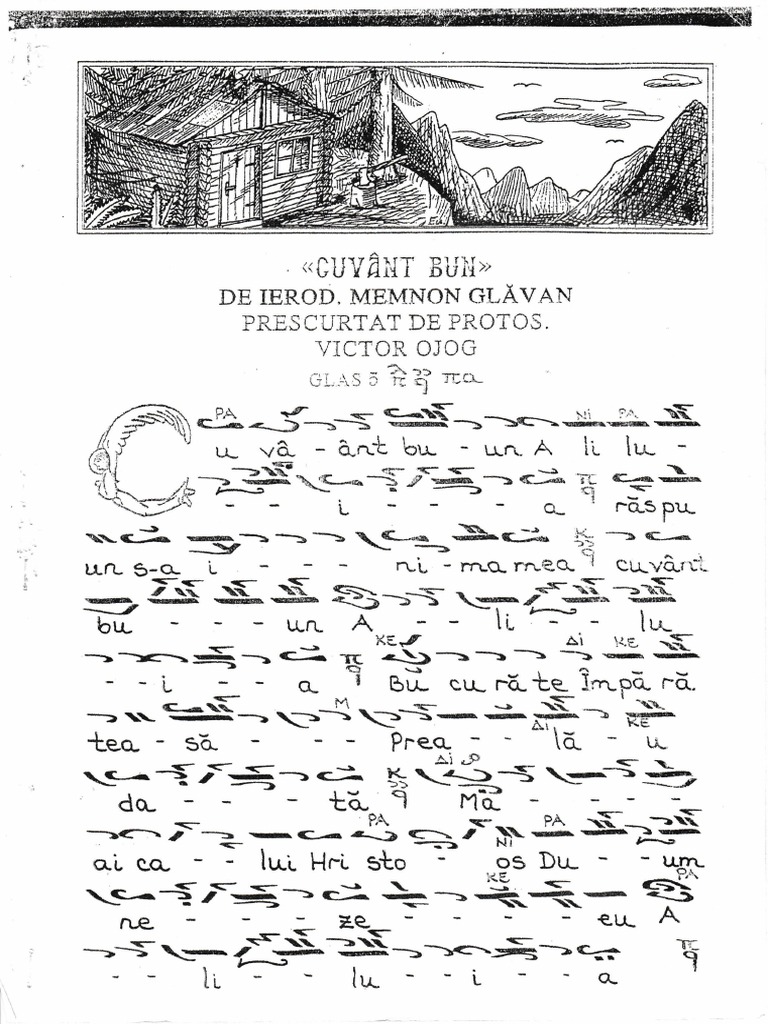 «CUVÂNT BUN»
DE IEROD. MEMNON GLĂVAN
PRESCURTAT DE PROTOS.
VICTOR OJOG
GLAS 5 πα
PA NI PA
C u vâ - ânt bu - un A li lu -
- - i - - - a răspu
un s-a i - - - ni - ma mea cuvânt
bu - - - un A - - li - - lu
KE Δi KE
- - i - - a Bu cu ră te Împă ră
M
tea - să - - - Prea - - lă - u
Δi KE
Δi
da - - - tă Mă - - - -
PA PA
ai ca - - lui Hri sto - os Du - - um
NI
KE PA
ne - - ze - - - - - eu A
- - li - - lu - - i - - a